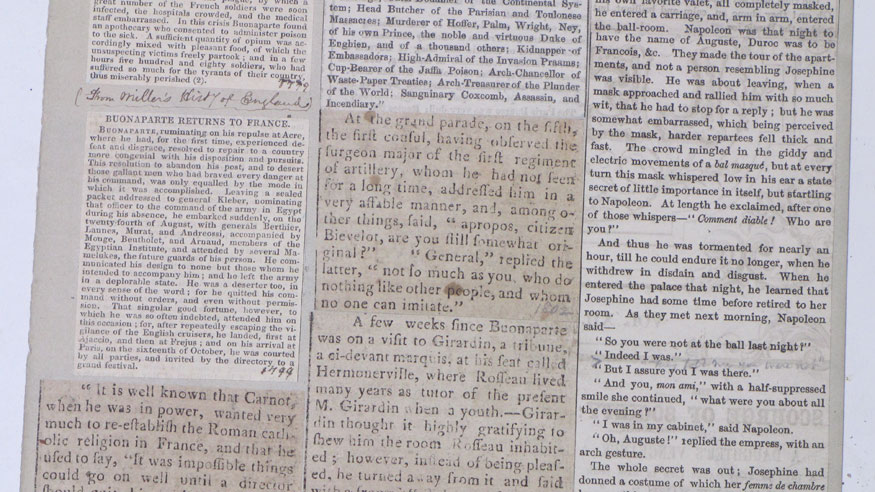 great number of the French soldiers were soon
infected, the hospitals crowded, and the medical
staff embarrassed. In this crisis Buonaparte found
an apothecary who consented to administer poison
to the sick. A sufficient quantity of opium was ac-
cordingly mixed with pleasant food, of which the
unsuspecting victims freely partook; and in a few
hours five hundred and eighty soldiers, who had
suffered so much for the tyrants of their country,
thus miserably perished (?).
1799
(From Miller's Hist'y of England)
BUONAPARTE RETURNS TO FRANCE.
BUONAPARTE, ruminating on his repulse at Acre,
where he had, for the first time, experienced de-
feat and disgrace, resolved to repair to a country
more congenial with his disposition and pursuits.
This resolution to abandon his post, and to desert
those gallant men who had braved every danger at
his command, was only equalled by the mode in
which it was accomplished. Leaving a sealed
packet addressed to general Kleber, nominating
that officer to the command of the army in Egypt
during his absence, he embarked suddenly, on the
twenty-fourth of August, with generals Berthier,
Lannes, Murat, and Andreossi, accompanied by
Monge, Bentholet, and Arnaud, members of the
Egyptian Institute, and attended by several Ma-
melukes, the future guards of his person. He com-
municated his design to none but those whom he
intended to accompany him; and he left the army
in a deplorable state. He was a deserter too, in
every sense of the word; for he quitted his com-
mand without orders, and even without permis-
sion. That singular good fortune, however, to
which he was so often indebted, attended him on
this occasion; for, after repeatedly escaping the vi-
gilance of the English cruisers, he landed, first at
Ajaccio, and then at Frejus; and on his arrival at
Paris, on the sixteenth of October, he was courted
by all parties, and invited by the directory to a
grand festival.
1799
"It is well known that Carnot,
when he was in power, wanted very
much to re-establish the Roman cath-
olic religion in France, and that he
ufed to say, "It was impoffible things
could go on well until a director
of the Continental Sys-
tem; Head Butcher of the Parisian and Toulonese
Massacres; Murderer of Hoffer, Palm, Wright, Ney,
of his own Prince, the noble and virtuous Duke of
Enghien, and of a thousand others; Kidnapper of
Embassadors; High-Admiral of the Invasion Praams;
Cup-Bearer of the Jaffa Poison; Arch-Chancellor of
Waste-Paper Treaties; Arch-Treasurer of the Plunder
of the World; Sanguinary Coxcomb, Assassin, and
Incendiary."
At the grand parade, on the fifth,
the firft conful, having obferved the
furgeon major of the firft regiment
of artillery, whom he had not feen
for a long time, addreffed him in a
very affable manner, and, among o-
ther things, faid, "apropos, citizen
Bievelot, are you ftill fomewhat ori-
ginal?" "General," replied the
latter, "not fo much as you, who do
nothing like other people, and whom
no one can imitate."
1802
A few weeks since Buonaparte
was on a vifit to Girardin, a tribune,
a ci-devant marquis, at his feat called
Hermonerville, where Roffeau lived
many years as tutor of the prefent
M. Girardin when a youth.—Girar-
din thought it highly gratifying to
fhew him the room Roffeau inhabit-
ed; however, inftead of being pleaf-
ed, he turned away from it and faid
his own favorite valet, all completely masked,
he entered a carriage, and, arm in arm, entered
the ball-room. Napoleon was that night to
have the name of Auguste, Duroc was to be
Francois, &c. They made the tour of the apart-
ments, and not a person resembling Josephine
was visible. He was about leaving, when a
mask approached and rallied him with so much
wit, that he had to stop for a reply; but he was
somewhat embarrassed, which being perceived
by the mask, harder repartees fell thick and
fast. The crowd mingled in the giddy and
electric movements of a bal masqué, but at every
turn this mask whispered low in his ear a state
secret of little importance in itself, but startling
to Napoleon. At length he exclaimed, after one
of those whispers—"Comment diable! Who are
you?"
And thus he was tormented for nearly an
hour, till he could endure it no longer, when he
withdrew in disdain and disgust. When he
entered the palace that night, he learned that
Josephine had some time before retired to her
room. As they met next morning, Napoleon
said—
"So you were not at the ball last night?"
"Indeed I was."
"But I assure you I was there."
"And you, mon ami," with a half-suppressed
smile she continued, "what were you about all
the evening?"
"I was in my cabinet," said Napoleon.
"Oh, Auguste!" replied the empress, with an
arch gesture.
The whole secret was out; Josephine had
donned a costume of which her femme de chambre